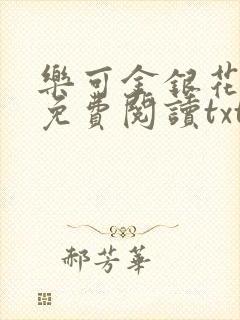 樂可金銀花
免費閱讀txt
郝芳華